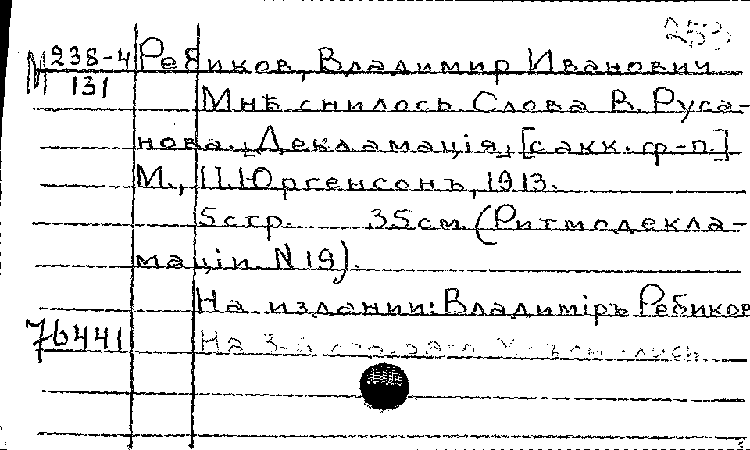 253
М 238-4 Ребиков, Владимир Иванович
131
Мнѣ снилось Слова В. Руса-
нова. "Декламація", [сакк. ф-п.]
М., П. Юргенсонъ, 1913.
5 стр. 35 см (Ритмодекла-
маціи N 19).
На издании: Владиміръ Ребиков
76441 На 3-й